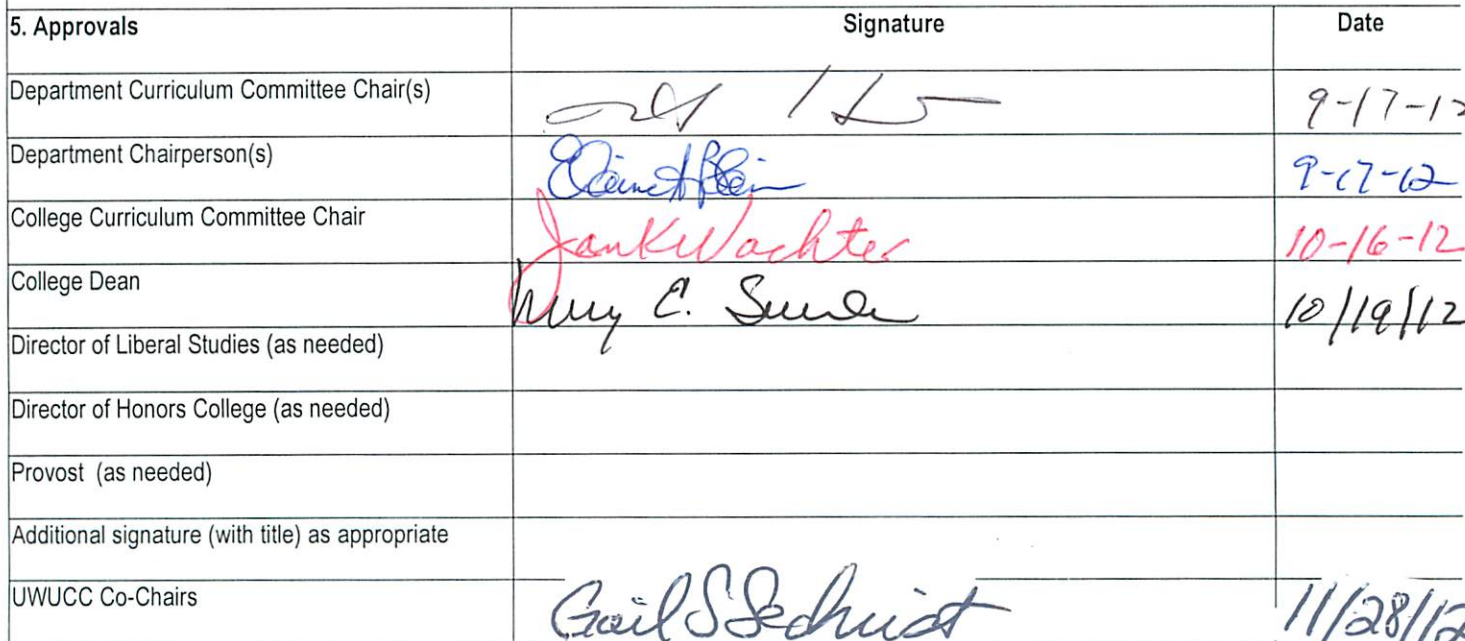 5. Approvals Signature Date
Department Curriculum Committee Chair(s) 9-17-12
Department Chairperson(s) 9-17-12
College Curriculum Committee Chair Jan K Wachter 10-16-12
College Dean C. 10/19/12
Director of Liberal Studies (as needed)
Director of Honors College (as needed)
Provost (as needed)
Additional signature (with title) as appropriate
UWUCC Co-Chairs Gail S Sechrist 11/28/12